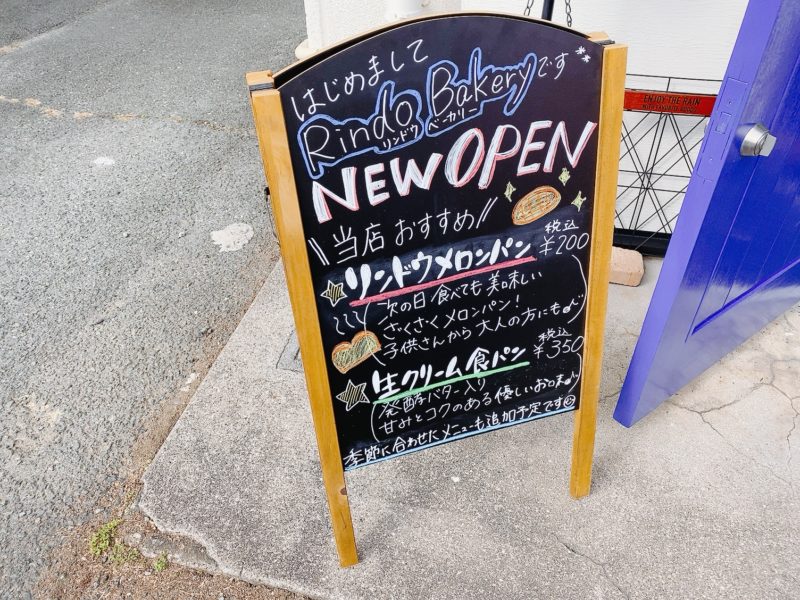 はじめまして
Rindo Bakeryです
リンドウ ベーカリー
NEW OPEN
当店 おすすめ
税込
リンドウメロンパン ¥200
次の日 食べても 美味しい
ざくざくメロンパン!
子供さんから 大人の方にも♪
税込
生クリーム食パン ¥350
発酵バター入り
甘みとコクのある優しいお味♪
季節に合わせたメニューも追加予定です☺
ENJOY THE RAIN